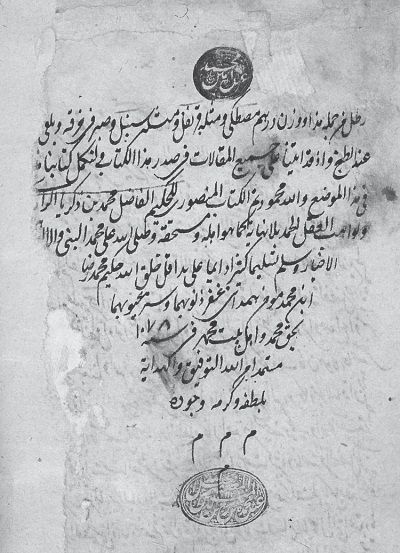 رطل فرجملة هذا ووزن درهم مصطكي ومثله قرنفل ومثله سنبل وصير في خرقة ويلقى
عند الطبخ واذ قد اتينا على جميع المقالات في صدر هذا الكتاب فلنكمل كتابنا
في هذا الموضع والله محمود تم الكتاب المنصوري للحكيم الفاضل محمد بن زكريا
ولواهب العقل الحمد بلا نهاية كما هو اهله ومستحقه وصلى الله على محمد النبي واله
الاخيار وسلم تسليما كثيرا دايما على يد اقل خلق الله حكيم محمد رضا
ابن محمد مومن غفر ذنوبهما وستر عيوبهما
بحق محمد واهل بيت محمد في سنة ١٠٧٨
مستمدا من الله التوفيق والهداية
بلطفه وكرمه وجوده
م م م